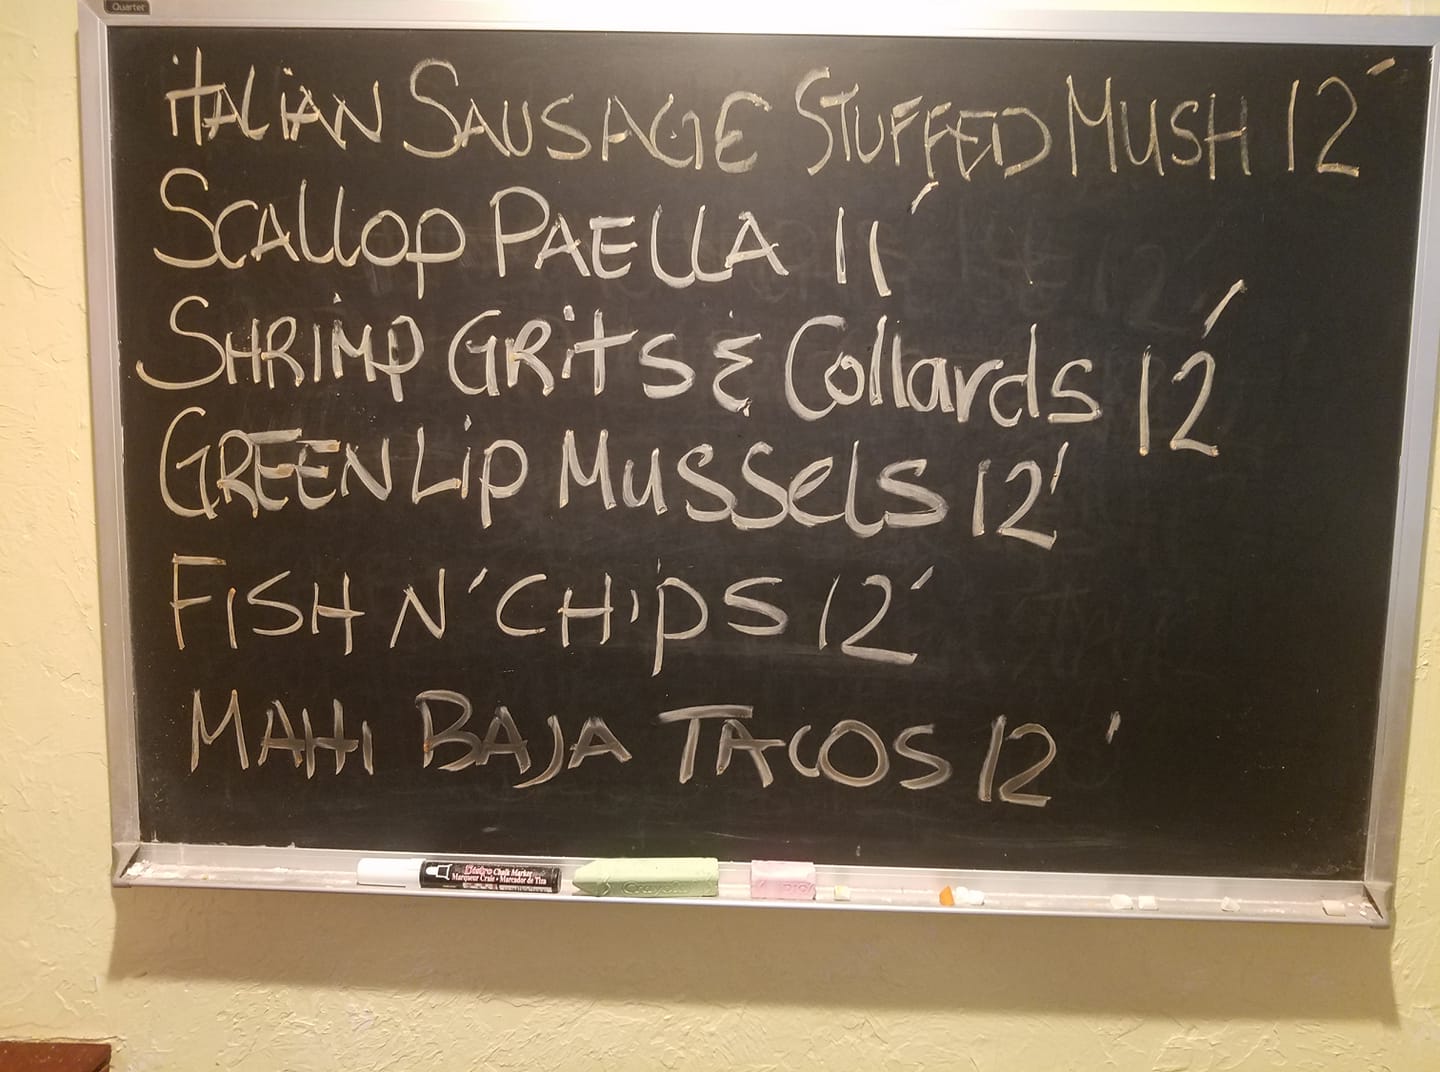 Quartet
iTALiAN SAUSAGE STUFFED MUSH 12'
SCALLOP PAELLA 11'
SHRIMP GRitS & Collards 12'
GREEN Lip MUSSElS 12'
FISH N' CHiPS 12'
MAHI BAJA TACOS 12'
Bistro Chalk Marker
Marqueur Craie • Marcador de Tiza
Crayola